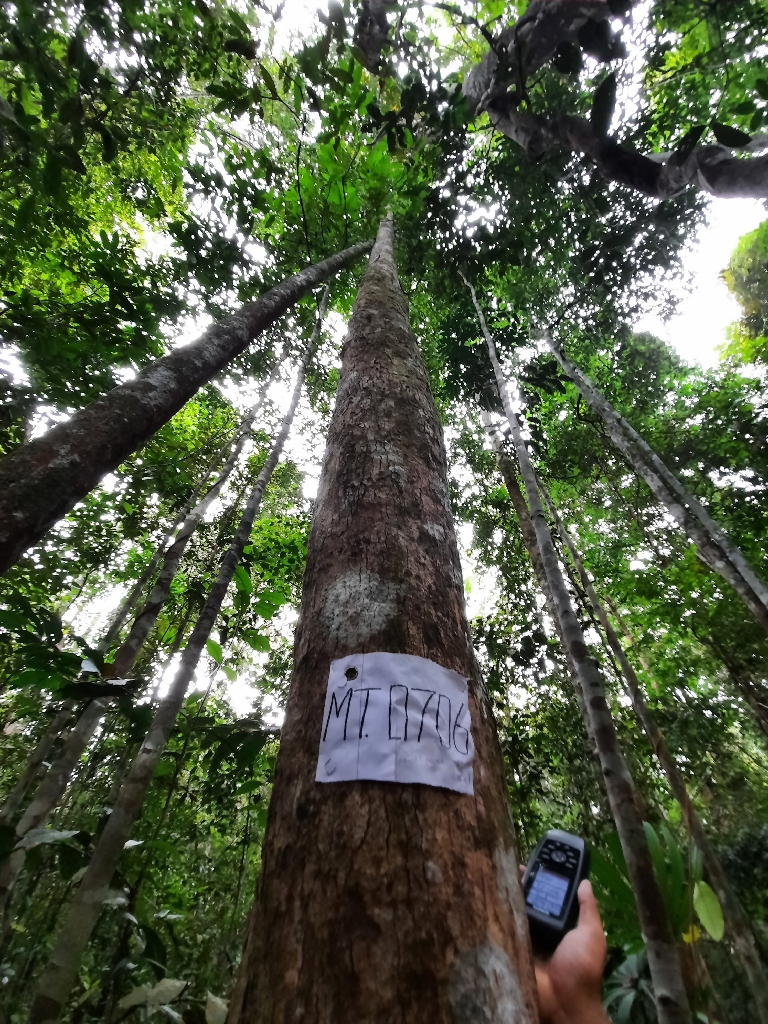 MT. 0706